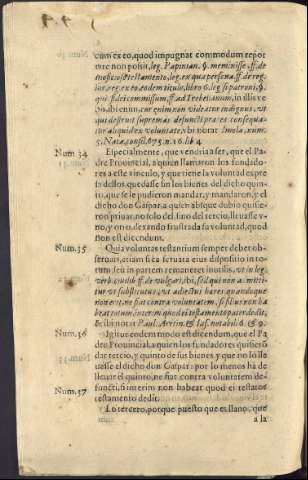 cum ex eo, quod impugnat commodum repor
tare non possit, leg. Papinian. §. meminisse, ff. de
inofficioso testamento, leg. ex qua persona, ff. de reg.
iur. leg. ex eodem titulo, libro 6. leg. si patroni, §.
qui fideicommissum, ff. ad Trebellianum, in illis ver
bis, ibi enim
qui destruit supremas defuncti preces consequa
tur aliquid ex voluntate, & ibi notat Imola, num.
5. Nata, consil. 675. n. 16. lib. 4
Num. 34
Especialmente, que vendria a ser, que el Pa
dre Provincial, a quien llamaron los fundado
res a este vinculo, y que tiene la voluntad expres
sa dellos, quedasse sin los bienes del dicho quin
to, que se le pudieron mandar, y mandaron, y el
dicho don Gaspar, a quien absque dubio quisie-
ron privar, no solo del, sino del tercio, lleuasse v-
no, y otro, dexando frustrada su voluntad, quod
non est dicendum.
Num. 35
Quia voluntas testantium semper debet ob-
seruari, etiam si ea seruata eius dispositio in to-
tum, seu in partem remaneret inutilis, vt in leg.
verbis ciuilib. ff. de vulgari, ibi, sed qui non admitti-
tur vt substitutus, vt adiectus heres quandoque
non erit, ne fiat contra voluntatem, si filius non ha
beat totum, interim quod ei testamento pater dedit,
& ibi notat Paul. Aretin. & Ias. notabil. 6. & 9.
Num. 36
Igitur eodem modo est dicendum, que el Pa
dre Prouincial, a quien los fundadores quisierō
dar tercio, y quinto de sus bienes y que no los lle
uasse el dicho don Gaspar: por lo menos ha de
lleuar el quinto, ne fiat contra voluntatem de-
functi, si interim non habeat quod ei testator
testamento dedit.
Num. 37
Lo tercero, porque puesto que es llano, que
a la